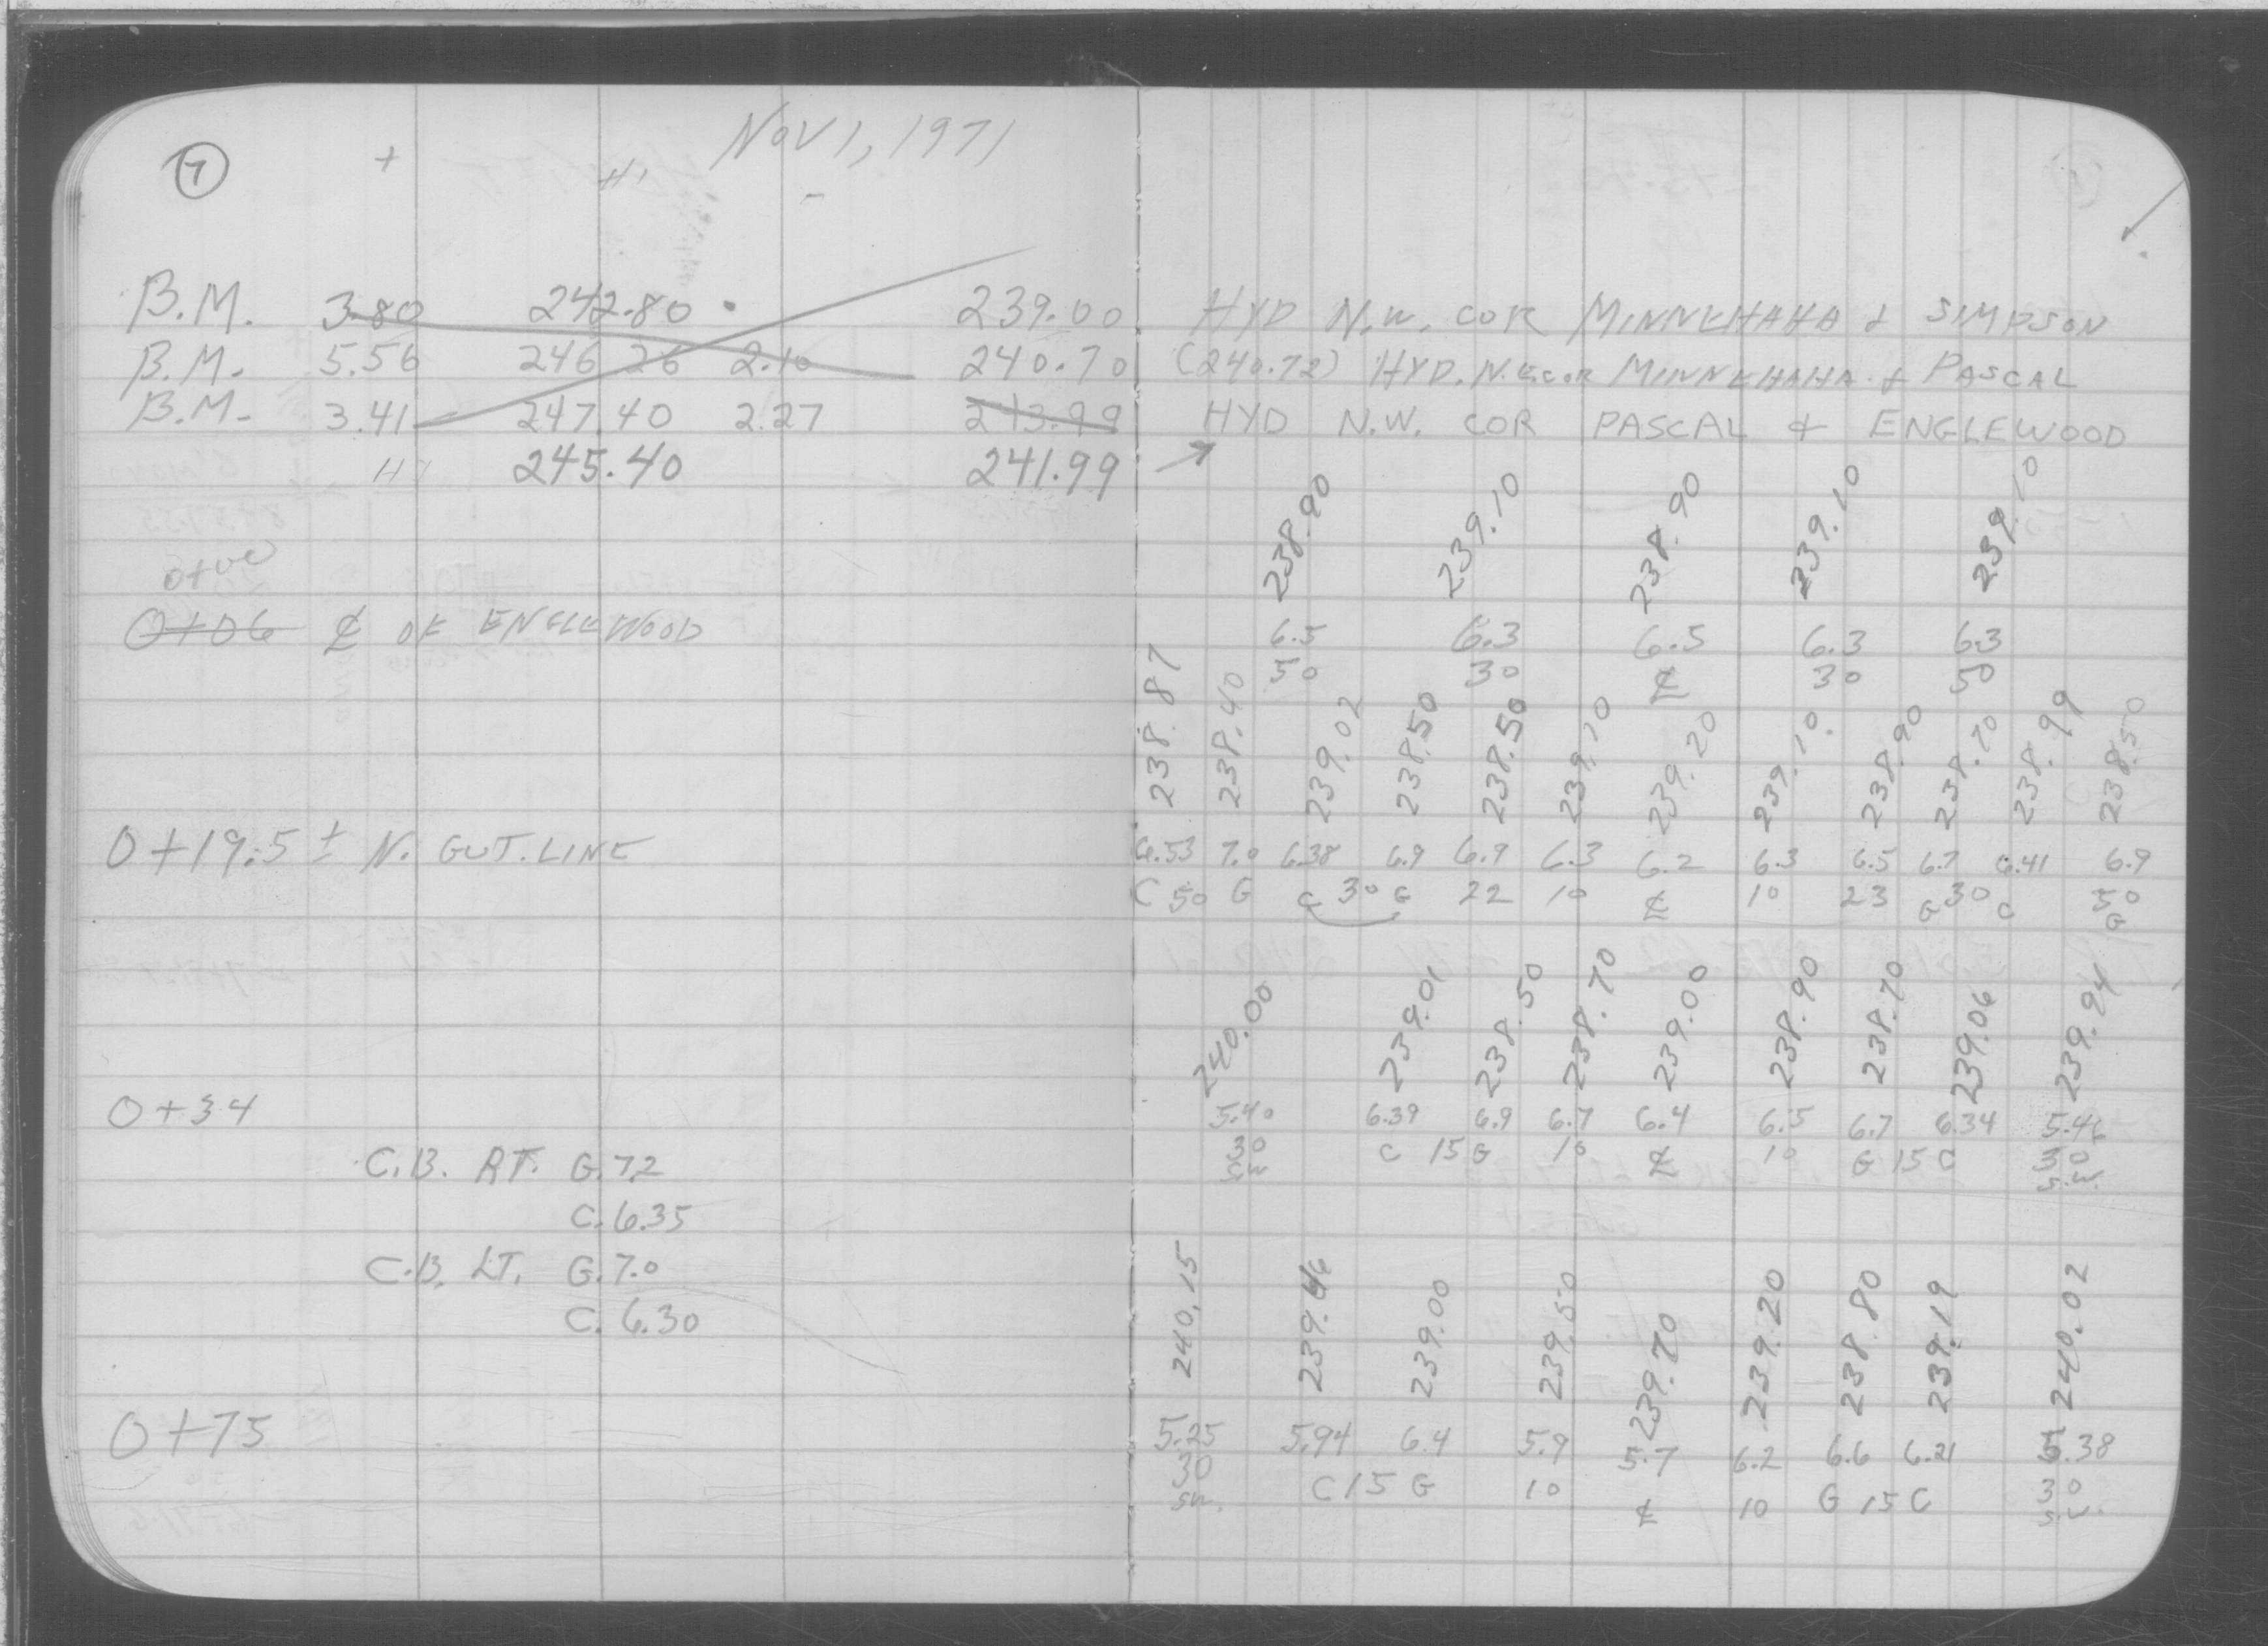 7
NOV 1, 1971
+ HI -
B.M. 3.80 242.80 239.00 HYD N.W. COR MINNEHAHA & SIMPSON
B.M. 5.56 246.26 2.10 240.70 (240.72) HYD. N.E. COR MINNEHAHA & PASCAL
B.M. 3.41 247.40 2.27 243.99 HYD N.W. COR PASCAL & ENGLEWOOD
HI 245.40 241.99
238.90 239.10 238.90 239.10 239.10
0+00
0+06 ℄ OF ENGLEWOOD 6.5 6.3 6.5 6.3 6.3
50 30 ℄ 30 50
238.87 238.40 239.02 238.50 238.50 239.10 239.20 239.10 238.90 238.70 238.99 238.50
0+19.5 ± N. GUT. LINE 6.53 7.0 6.38 6.9 6.9 6.3 6.2 6.3 6.5 6.7 6.41 6.9
C 50 G C 30 G 22 10 ℄ 10 23 G 30 C 50 G
240.00 239.01 238.50 238.70 239.00 238.90 238.70 239.06 239.94
0+34 5.40 6.39 6.9 6.7 6.4 6.5 6.7 6.34 5.46
30 C 15 G 10 ℄ 10 G 15 C 30
SW S.W.
C.B. RT. G. 7.2
C. 6.35
C.B. LT. G. 7.0
C. 6.30
240.15 239.46 239.00 239.50 239.70 239.20 238.80 239.19 240.02
0+75 5.25 5.94 6.4 5.9 5.7 6.2 6.6 6.21 5.38
30 C 15 G 10 ℄ 10 G 15 C 30
SW. S.W.